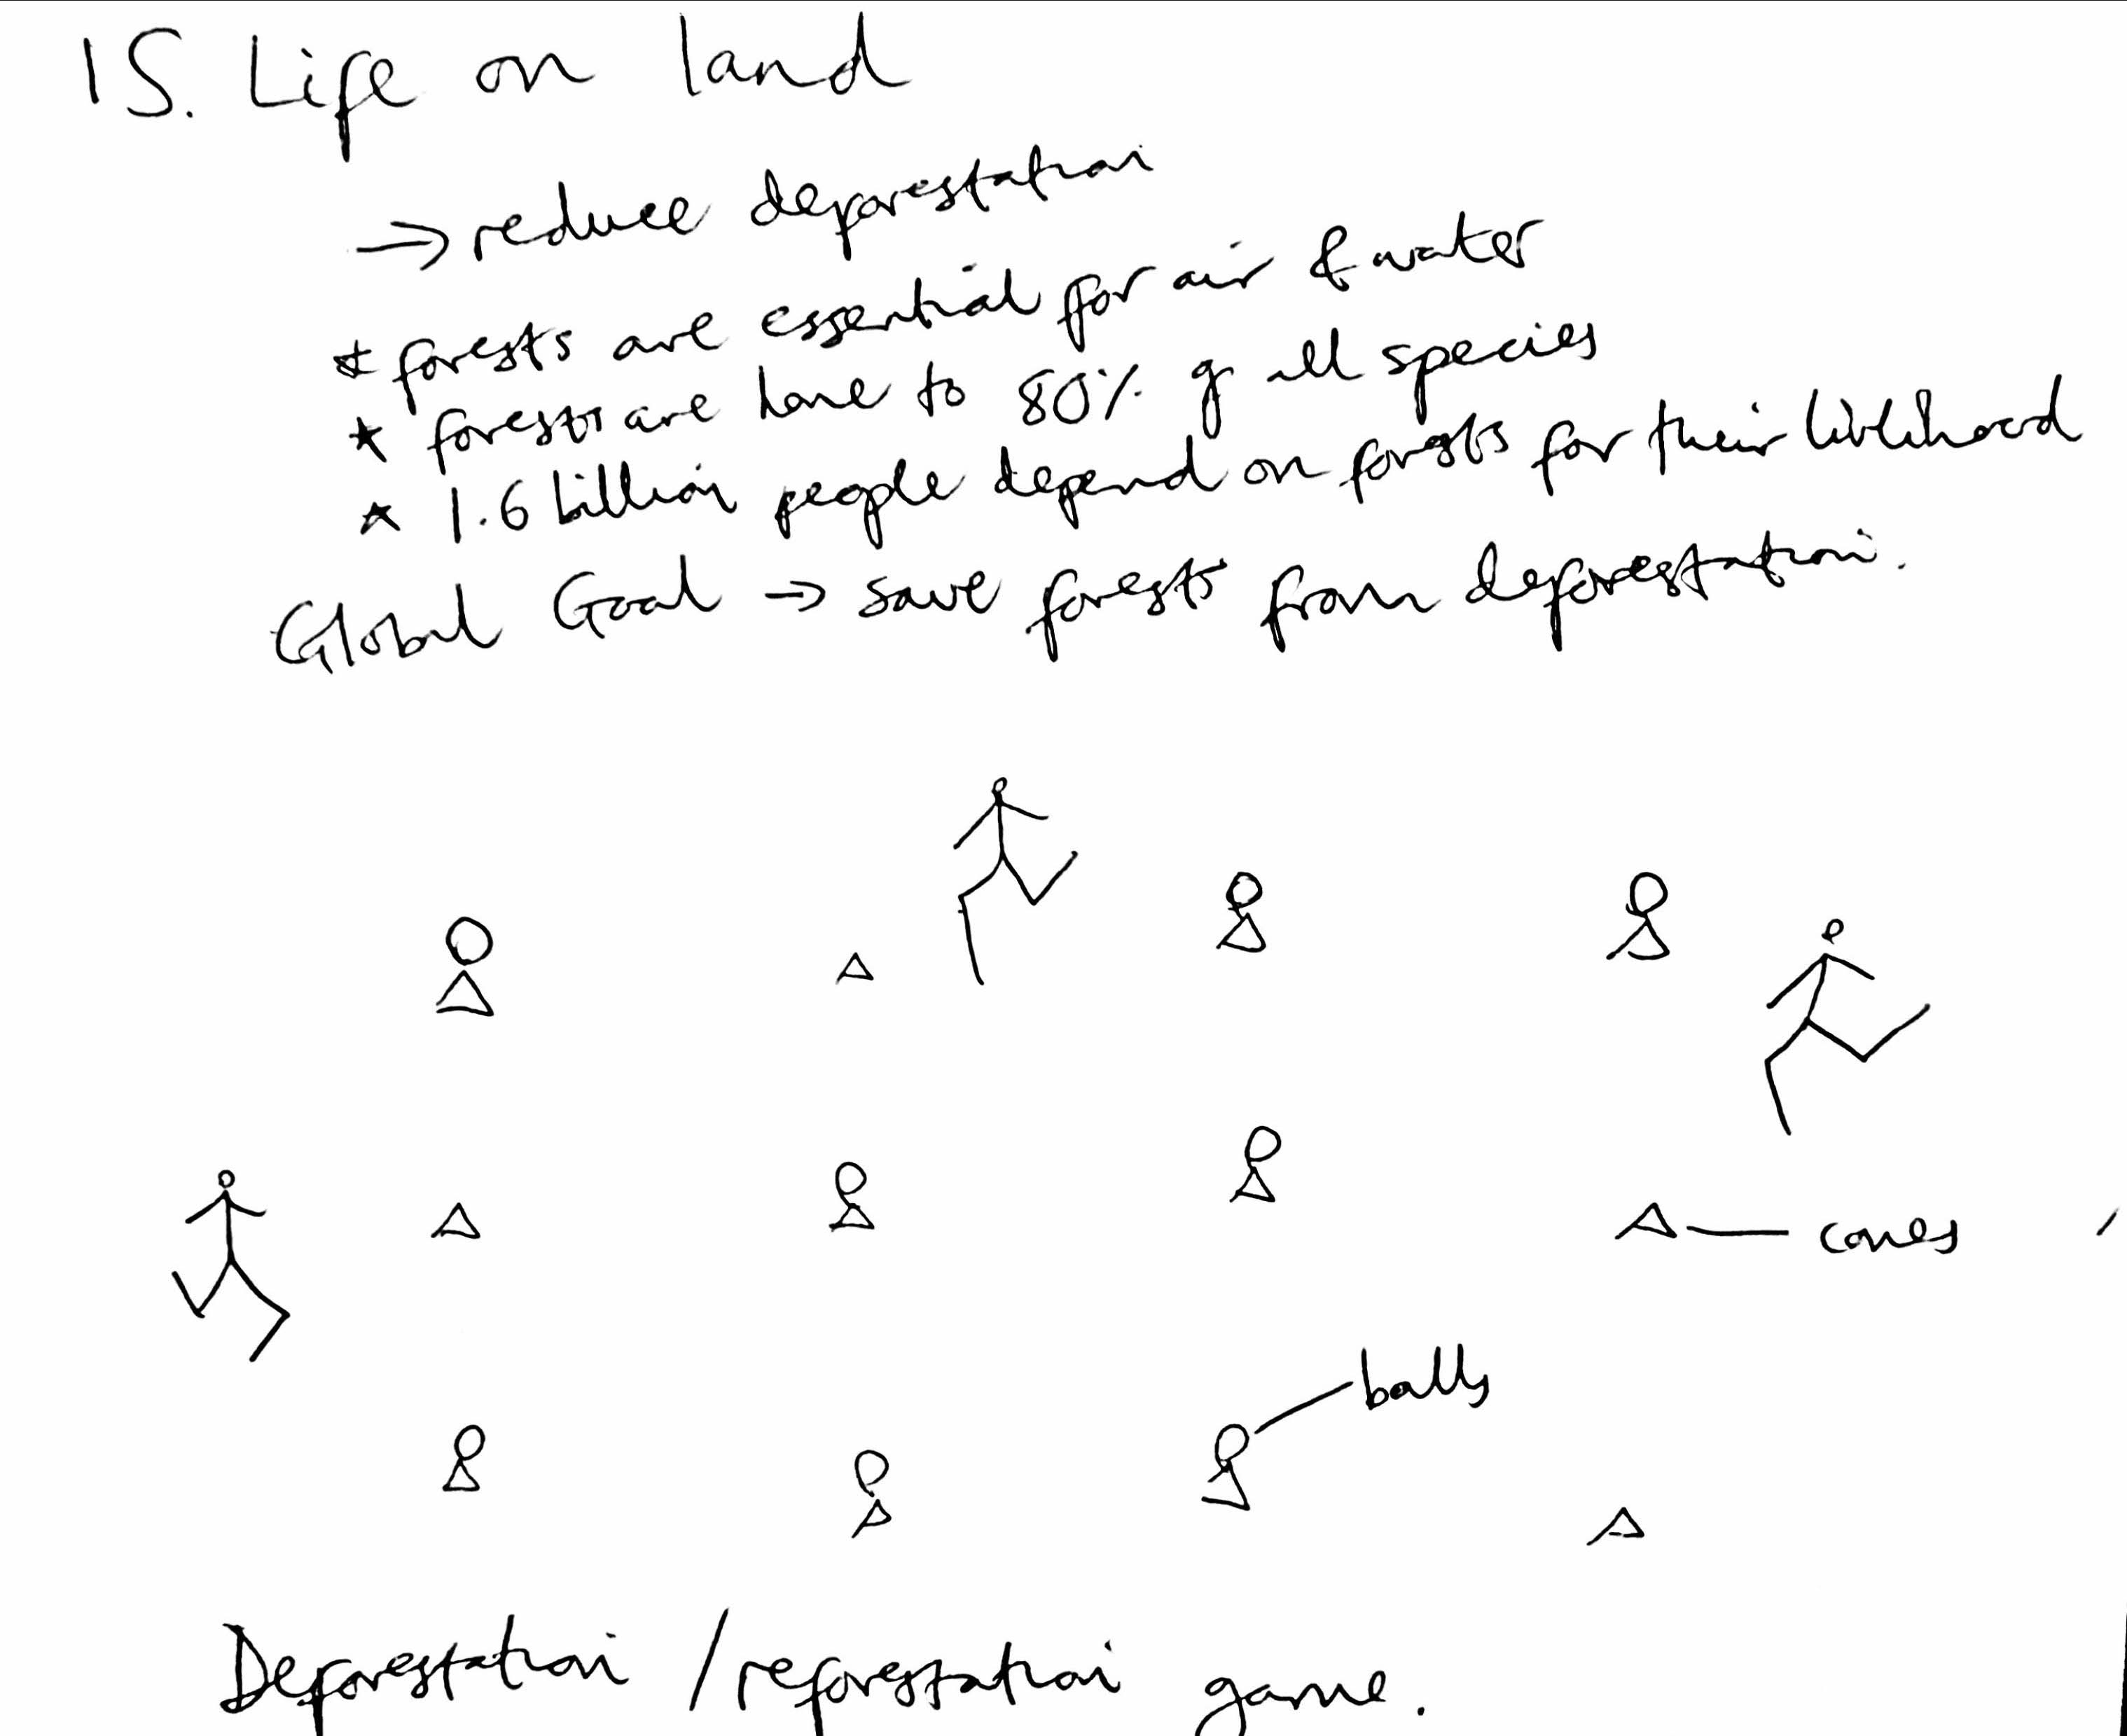 15. Life on land
→ reduce deforestation
* forests are essential for air & water
* forests are home to 80% of all species
* 1.6 billion people depend on forests for their livlihood
Global Goal → save forests from deforestation.
cones
balls
Deforestation / reforestation game.